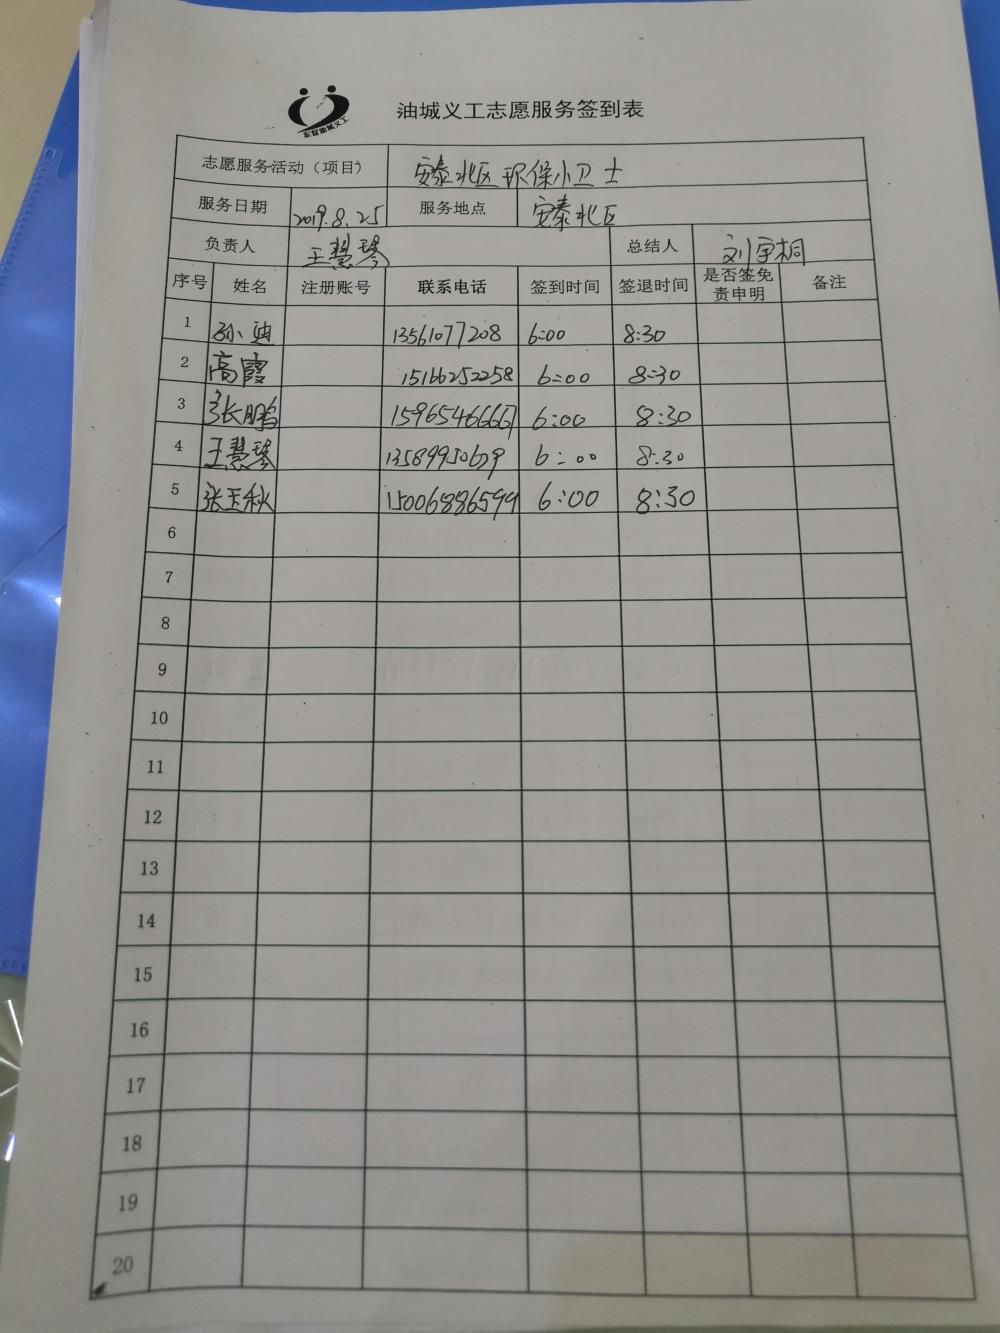 东营油城义工
油城义工志愿服务签到表
志愿服务活动（项目） 安泰北区 环保小卫士
服务日期 2019.8.25 服务地点 安泰北区
负责人 王慧琴 总结人 刘宇桐
序号 姓名 注册账号 联系电话 签到时间 签退时间 是否签免责申明 备注
1 孙迪 13561077208 6:00 8:30
2 高霞 15166252258 6:00 8:30
3 张鹏 6:00 8:30
4 王慧琴 6:00 8:30
5 张玉秋 15006886599 6:00 8:30
6
7
8
9
10
11
12
13
14
15
16
17
18
19
20